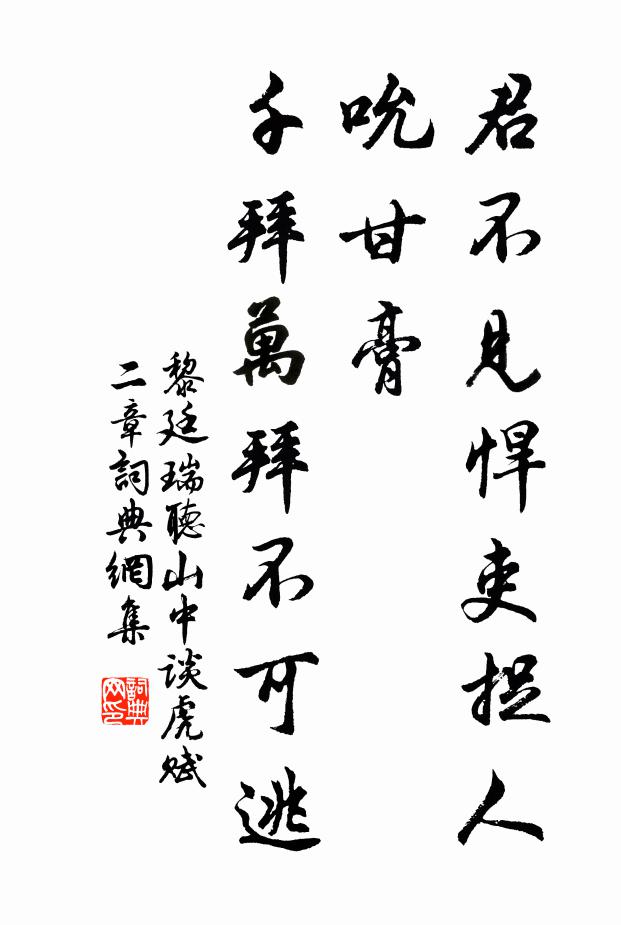 君不見悍吏捉人
吮甘膏
千拜萬拜不可逃
黎廷瑞聽山中谈虎赋
二章詞典網集
詞典网印